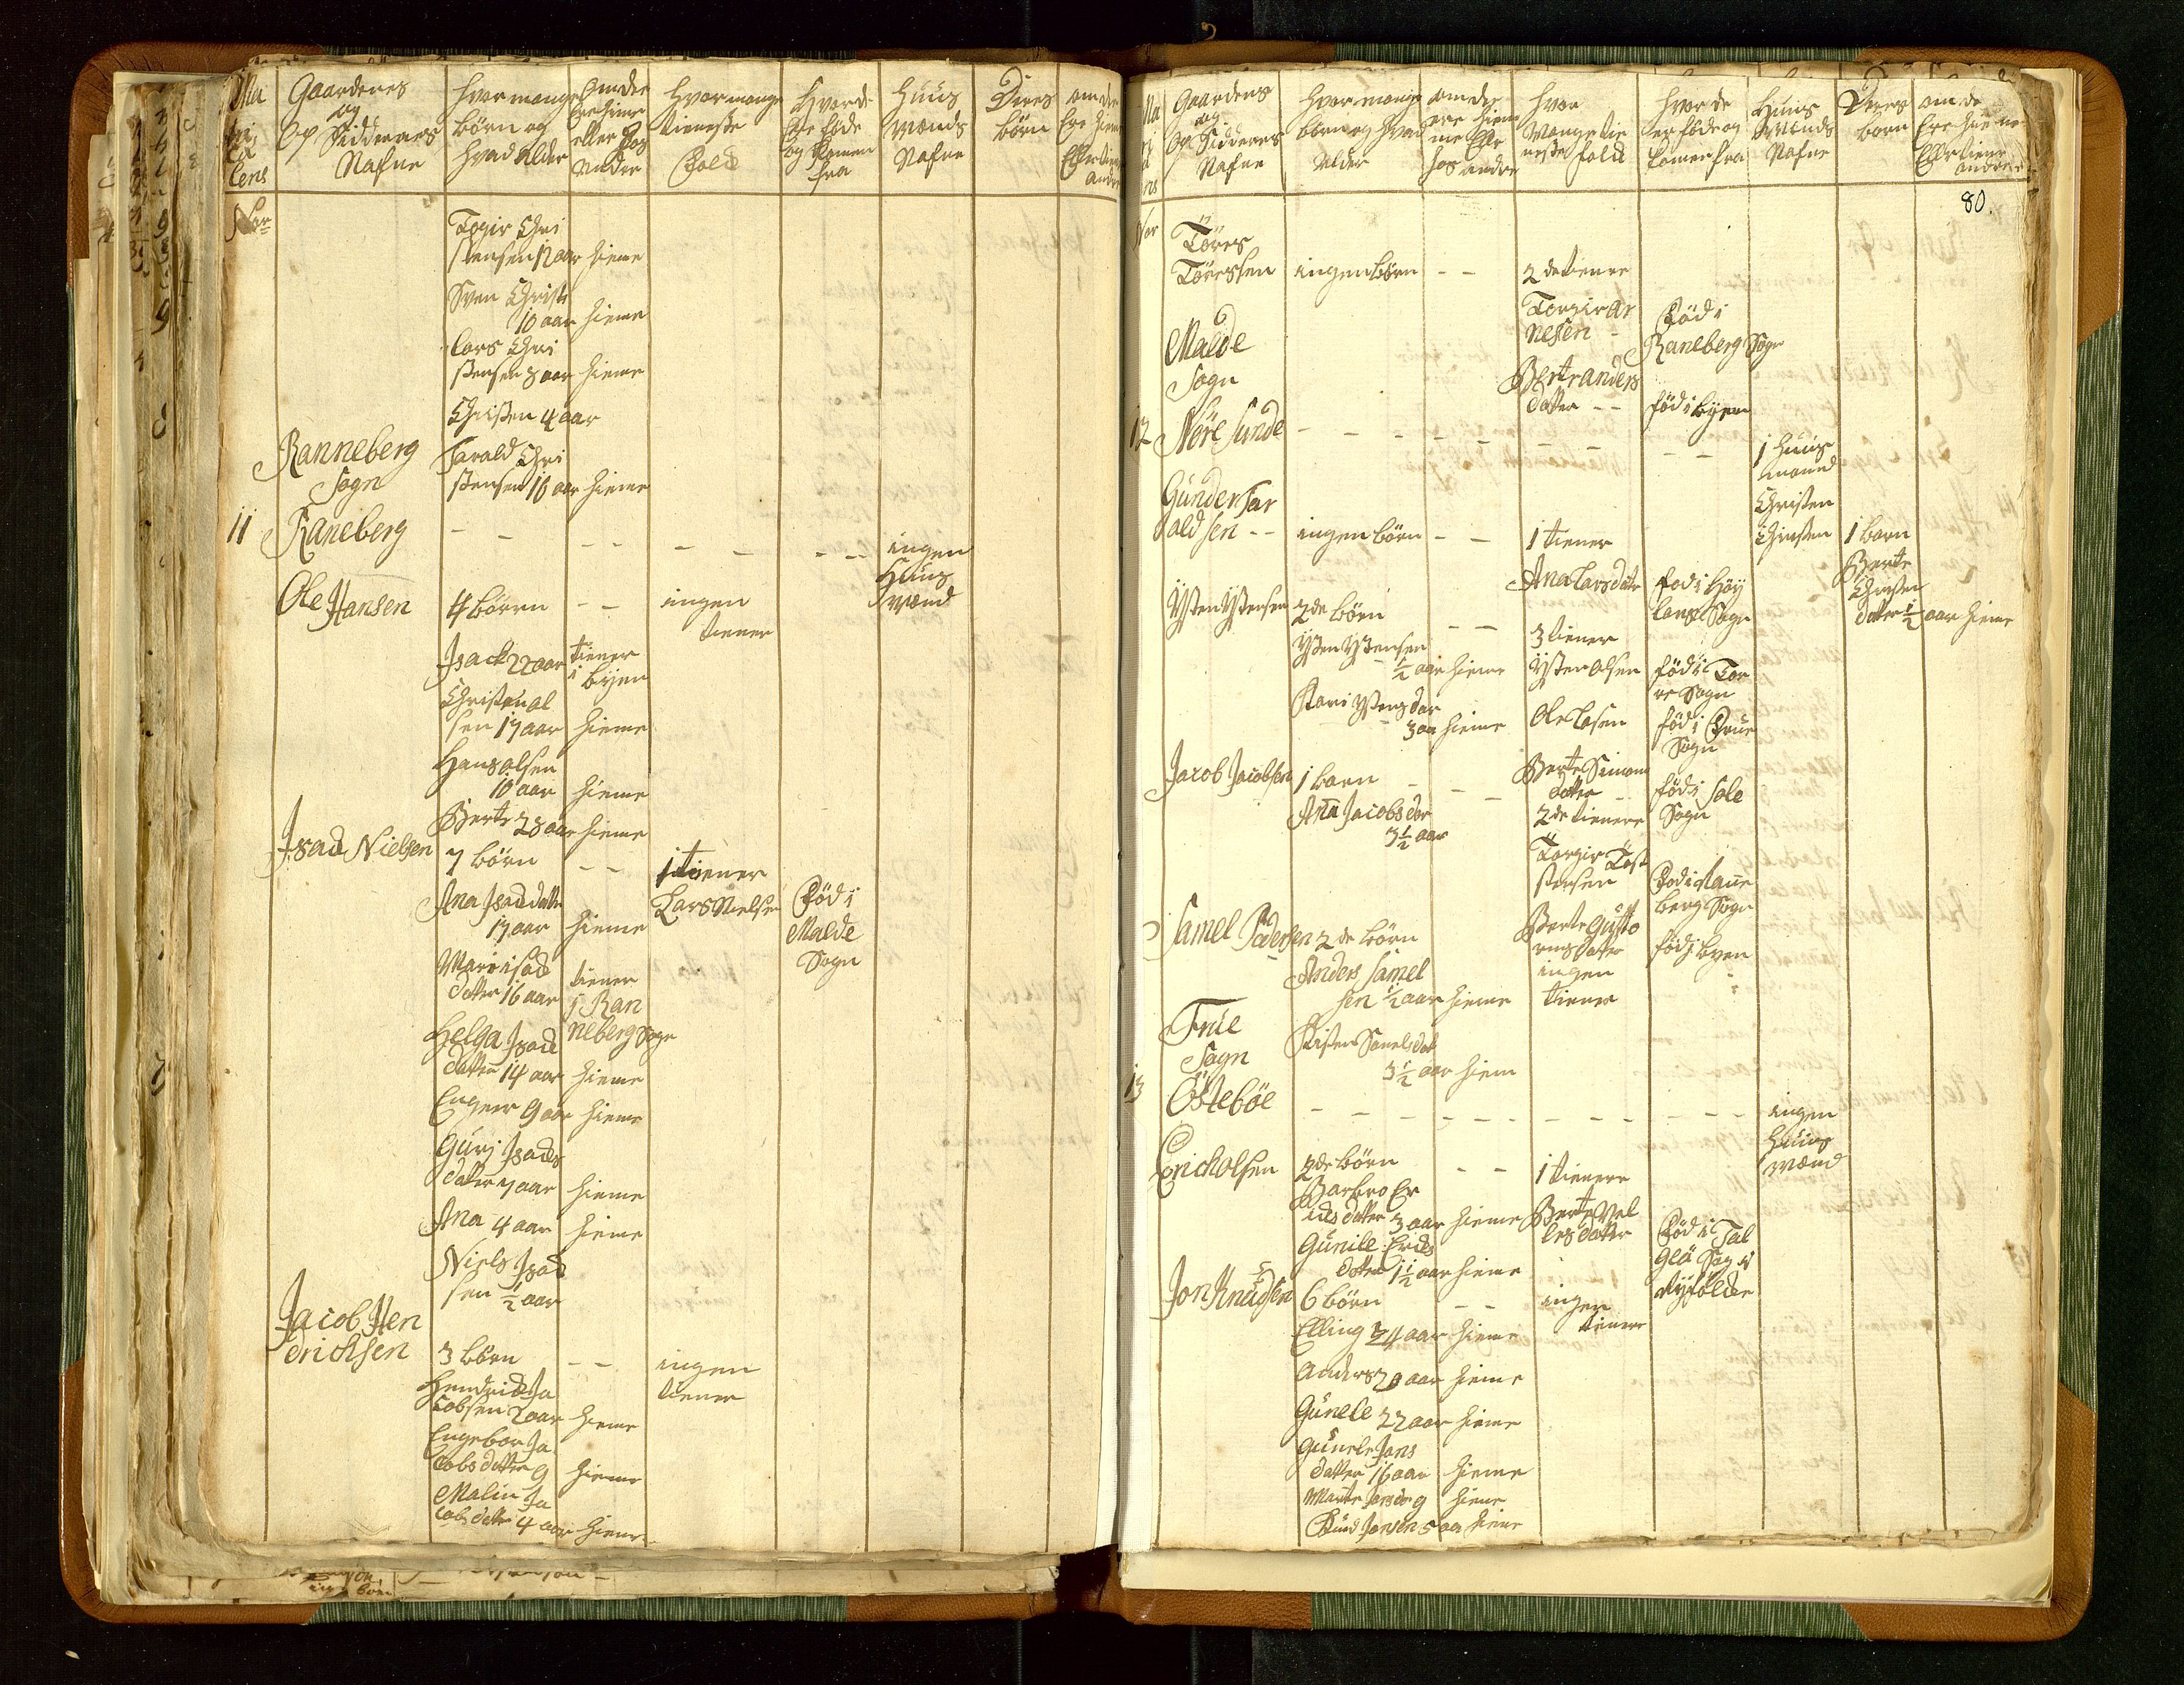 Gaardenes
og
Op Sidderenes
Nafne
hvor mange
børn og
hvad Alder
om de
Ere hieme
eller hos
andre
hvor mange
tieneste
Folck
hvor de
Ere føde
og komen
fra
Huus
Mænds
Nafne
Deres
børn
om de
Ere hieme
Eller tiene
andre
No
Torgir Chri
stensen 12 aar hieme
Sven Christ
10 aar hieme
Lars Chri
stensen 8 aar hieme
Christen 4 aar
Ranneberg
Sogn
Harald Chri
stensen 16 aar hieme
11 Raneberg - - - - - - - - ingen
Huus
Mænd
Ole Hansen 4 børn - - ingen
tiener
Isack 22 aar tiener
i byen
Christen Ol
sen 17 aar hieme
Hans Olsen
10 aar hieme
Berte 28 aar hieme
Isack Nielsen
7 børn - - 1 tiener
Ana Isack datter
17 aar hieme
Lars Nielsen
Fød i
Malde
Sogn
Mari Isack
datter 16 aar
tiener
i Ran
neberg Sogn
Helga Isack
datter 14 aar hieme
Enger 9 aar hieme
Guri Isacks
datter 7 aar hieme
Ana 4 aar hieme
Niels Isack
sen ½ aar
Jacob Hen
dricksen 3 børn - - ingen
tiener
Hendrick Ja
cobsen 2 aar hieme
Engebor Ja
cobs datter 9 hieme
Malin Ja
cobs datter 4 aar hieme
Gaardens
og
Op Sidderes
Nafne
hvor mange
børn og hvad
alder
om de
ere hiem
me Elr
hos andre
hvor
Mange tie
neste folck
hvor de
er føde og
komer fra
Huus
Mænds
Nafne
Deres
børn
om de
Ere hieme
Elr tiene
andre
80.
Töres
Töressen ingen børn - - 2 de tienere
Torgir Ar
nesen -
Fød i
Raneberg Sogn
Malde
Sogn
Berte Anders
datter - - fød i byen
12 Nere Sunde - - - - - - - - - -
1 Huus
mand
Christen
Christen
Gunder Har
aldsen - - ingen børn - - 1 tiener
1 barn
Berte
Christen
datter ½ aar hieme
Ana Lars datter fød i Høy
land Sogn
Ysten Ystensen 2 de børn - - 3 tiener
Ysten Ystensen
½ aar hieme
Ysten Olsen fød i Tor
re Sogn
Kari Ystens dar
3 aar hieme
Ole Lasen fød i Frue
Sogn
Jacob Jacobsen 1 barn - - -
Berte Simons
datter - fød i Sole
Sogn
Ana Jacobs dar
3½ aar
2 de tienere
Torgir Tost
stensen
Berte Gutto
rms datter fød i byen
Samel Pedersen 2 de børn
ingen
tiener
Anders Samel
sen ½ aar hieme
Frue
Sogn
Kisten Samels dat
3½ aar hiem
13 Östebøe - - - - - - - - - - ingen
Huus
Mænd
Erick Olsen 2 de børn - - 1 tienere
Barbro Er
icks datter 3 aar hieme
Berte Nel
les datter
Gunile Ericks
datter 1½ aar hieme
Jon Knudsen 6 børn - - ingen
tienere
Elling 24 aar hieme
Anders 20 aar hieme
Gunele 22 aar hieme
Gunele Jons
datter 16 aar hieme
Marte Jons dr 9 hieme
Knud Jonsen 5 aar hieme